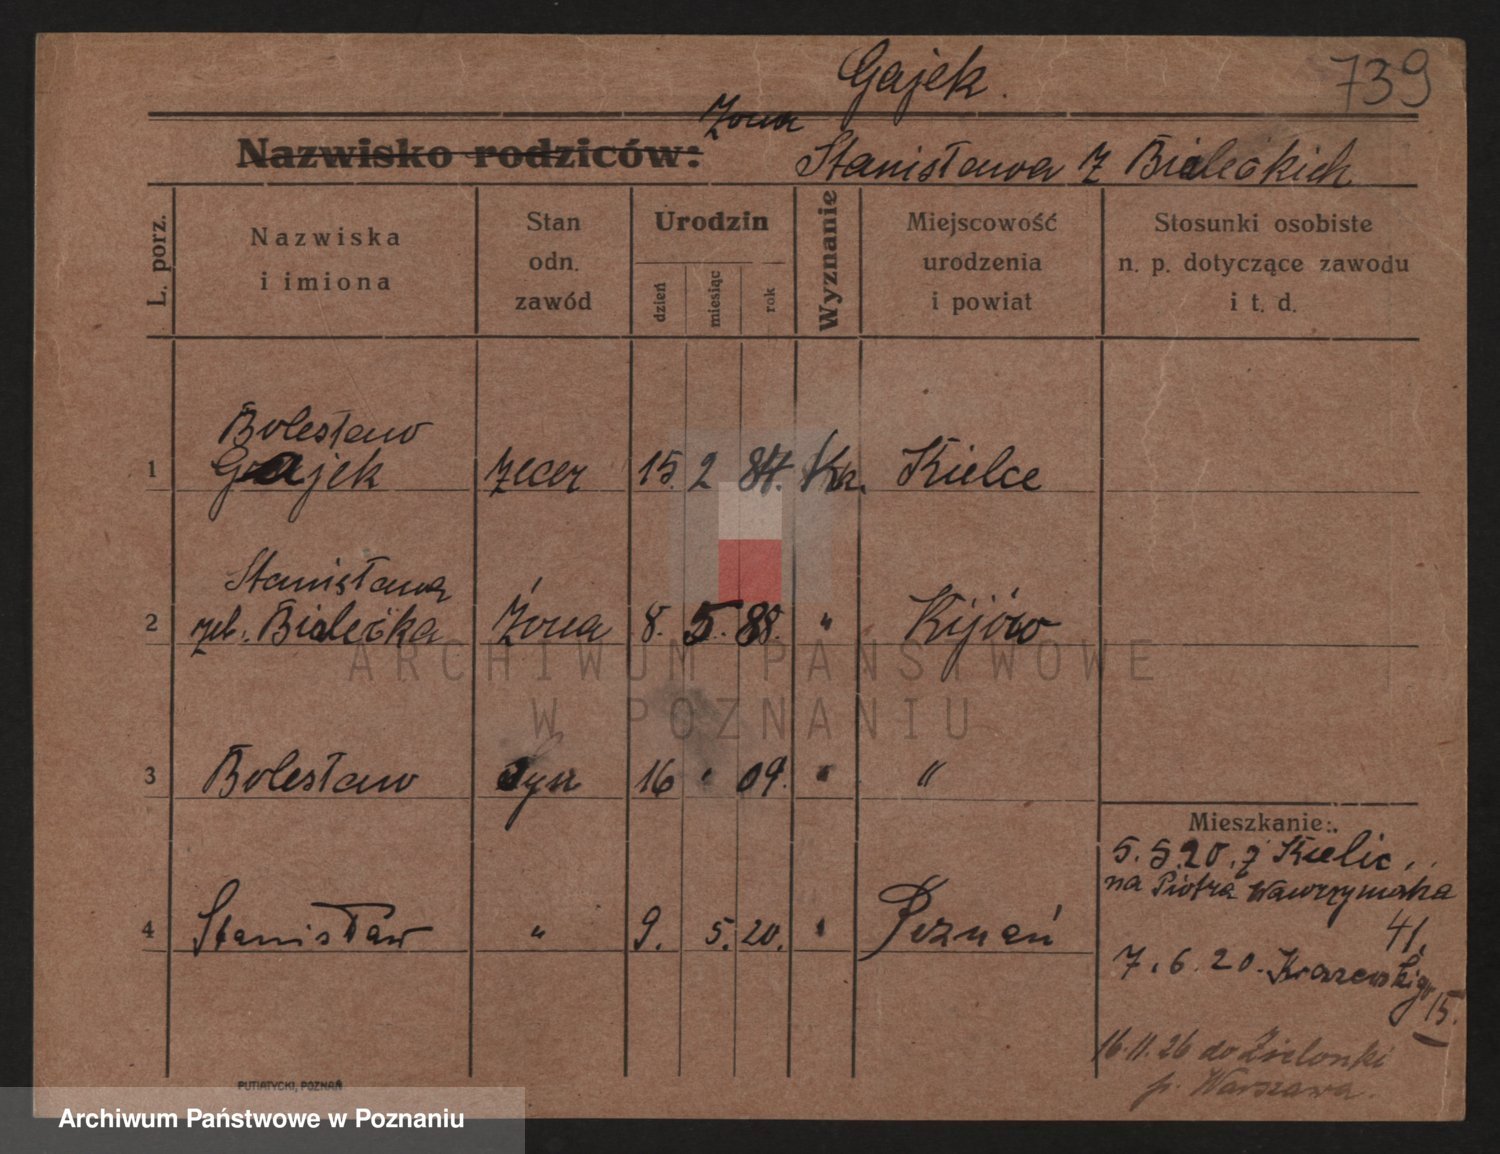 Gajek.
739
Żona
Nazwisko rodziców:
Stanisława z Białeckich
L. porz.
Nazwiska
i imiona
Stan
odn.
zawód
Urodzin
dzień
miesiąc
rok
Wyznanie
Miejscowość
urodzenia
i powiat
Stosunki osobiste
n. p. dotyczące zawodu
i t. d.
Bolesław
1 Gajek zecer 15. 2 84. Kielce
Stanisława
2 Białecka żona 8. 5. 88. " Kijów
3 Bolesław Syn 16 " 09. " "
Mieszkanie:
5. 5. 20. z Kielic
na Piotra Wawrzyniaka
41.
4 Stanisław " 9. 5. 20. " Poznań
7. 6. 20. Kraszewskiego
15.
16.11.26 do Zielonki
p. Warszawa.
PUTIATYCKI, POZNAŃ
ARCHIWUM PAŃSTWOWE
W POZNANIU
Archiwum Państwowe w Poznaniu